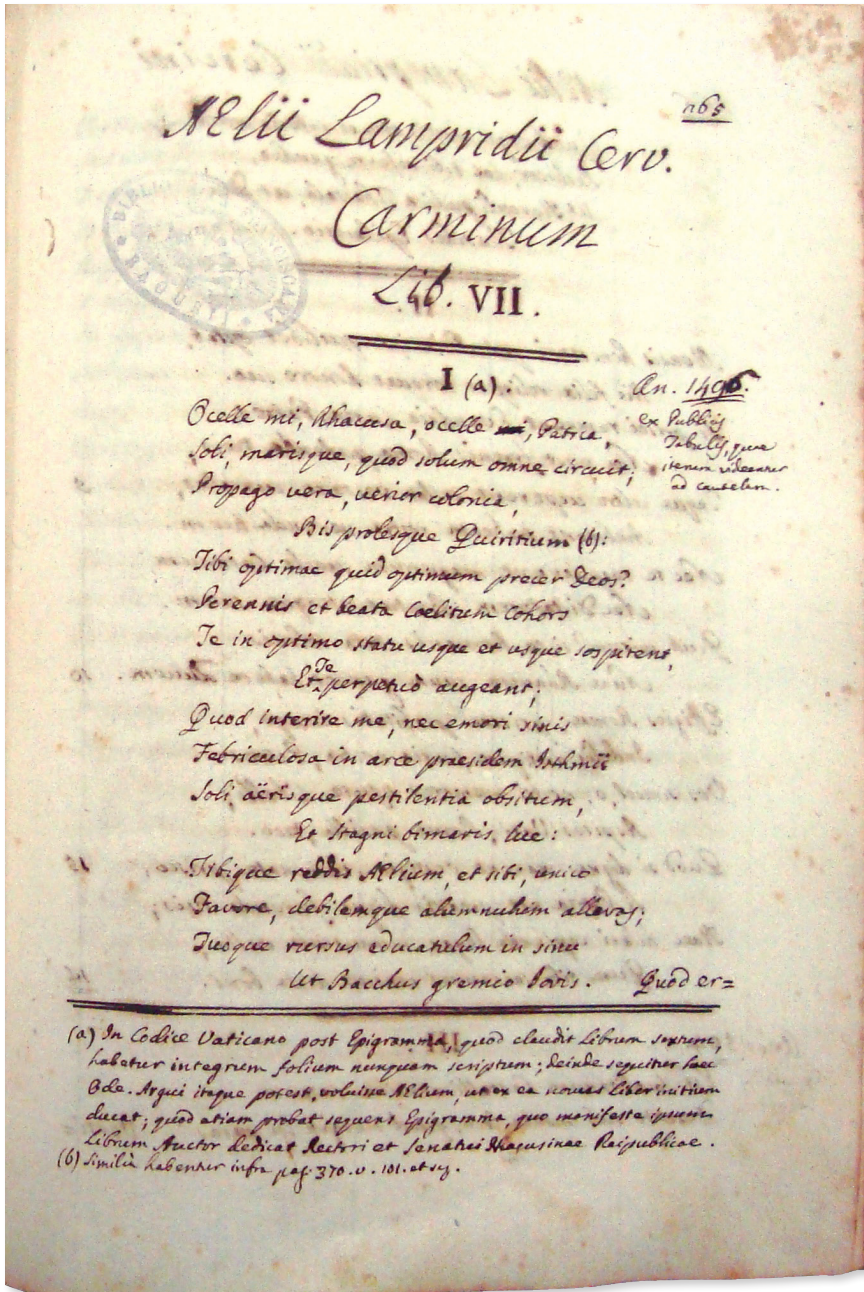 n65
AElii Lampridii Cerv.
Carminum
Lib. VII.
I (a).
An. 1496.
ex Publicis
Tabulis, quae
iterum videantur
ad cautelam.
Ocelle mi, Rhacusa, ocelle mi, Patria,
Soli, marisque, quod solum omne circuit;
Propago vera, verior colonia,
Bis prolesque Quiritium (b):
Tibi optimae quid optimum precer Deos?
Perennis et beata Coelitum Cohors
Te in optimo statu usque et usque sospitent,
Et Te perpetuo augeant;
Quod interire me, nec emori sinis
Febriculosa in arce praesidem Isthmii
Soli, aërisque pestilentia obsitum,
Et Stagni bimaris lue:
Tibique reddis AElium, et sibi, unico
Favore, debilemque alumnulum allevas;
Tuoque rursus educatulum in sinu
Ut Bacchus gremio Iovis. Quod er=
(a) In Codice Vaticano post Epigramma, quod claudit Librum sextum,
habetur integrum folium nunquam scriptum; deinde sequitur haec
Ode. Argui itaque potest, voluisse AElium, ut ex ea novus Liber initium
ducat; quod etiam probat sequens Epigramma, quo manifeste ipsum
Librum Auctor dedicat Rectori et Senatui Rhacusinae Reipublicae.
(b) Similia habentur infra pag. 370. v. 101. et seq.